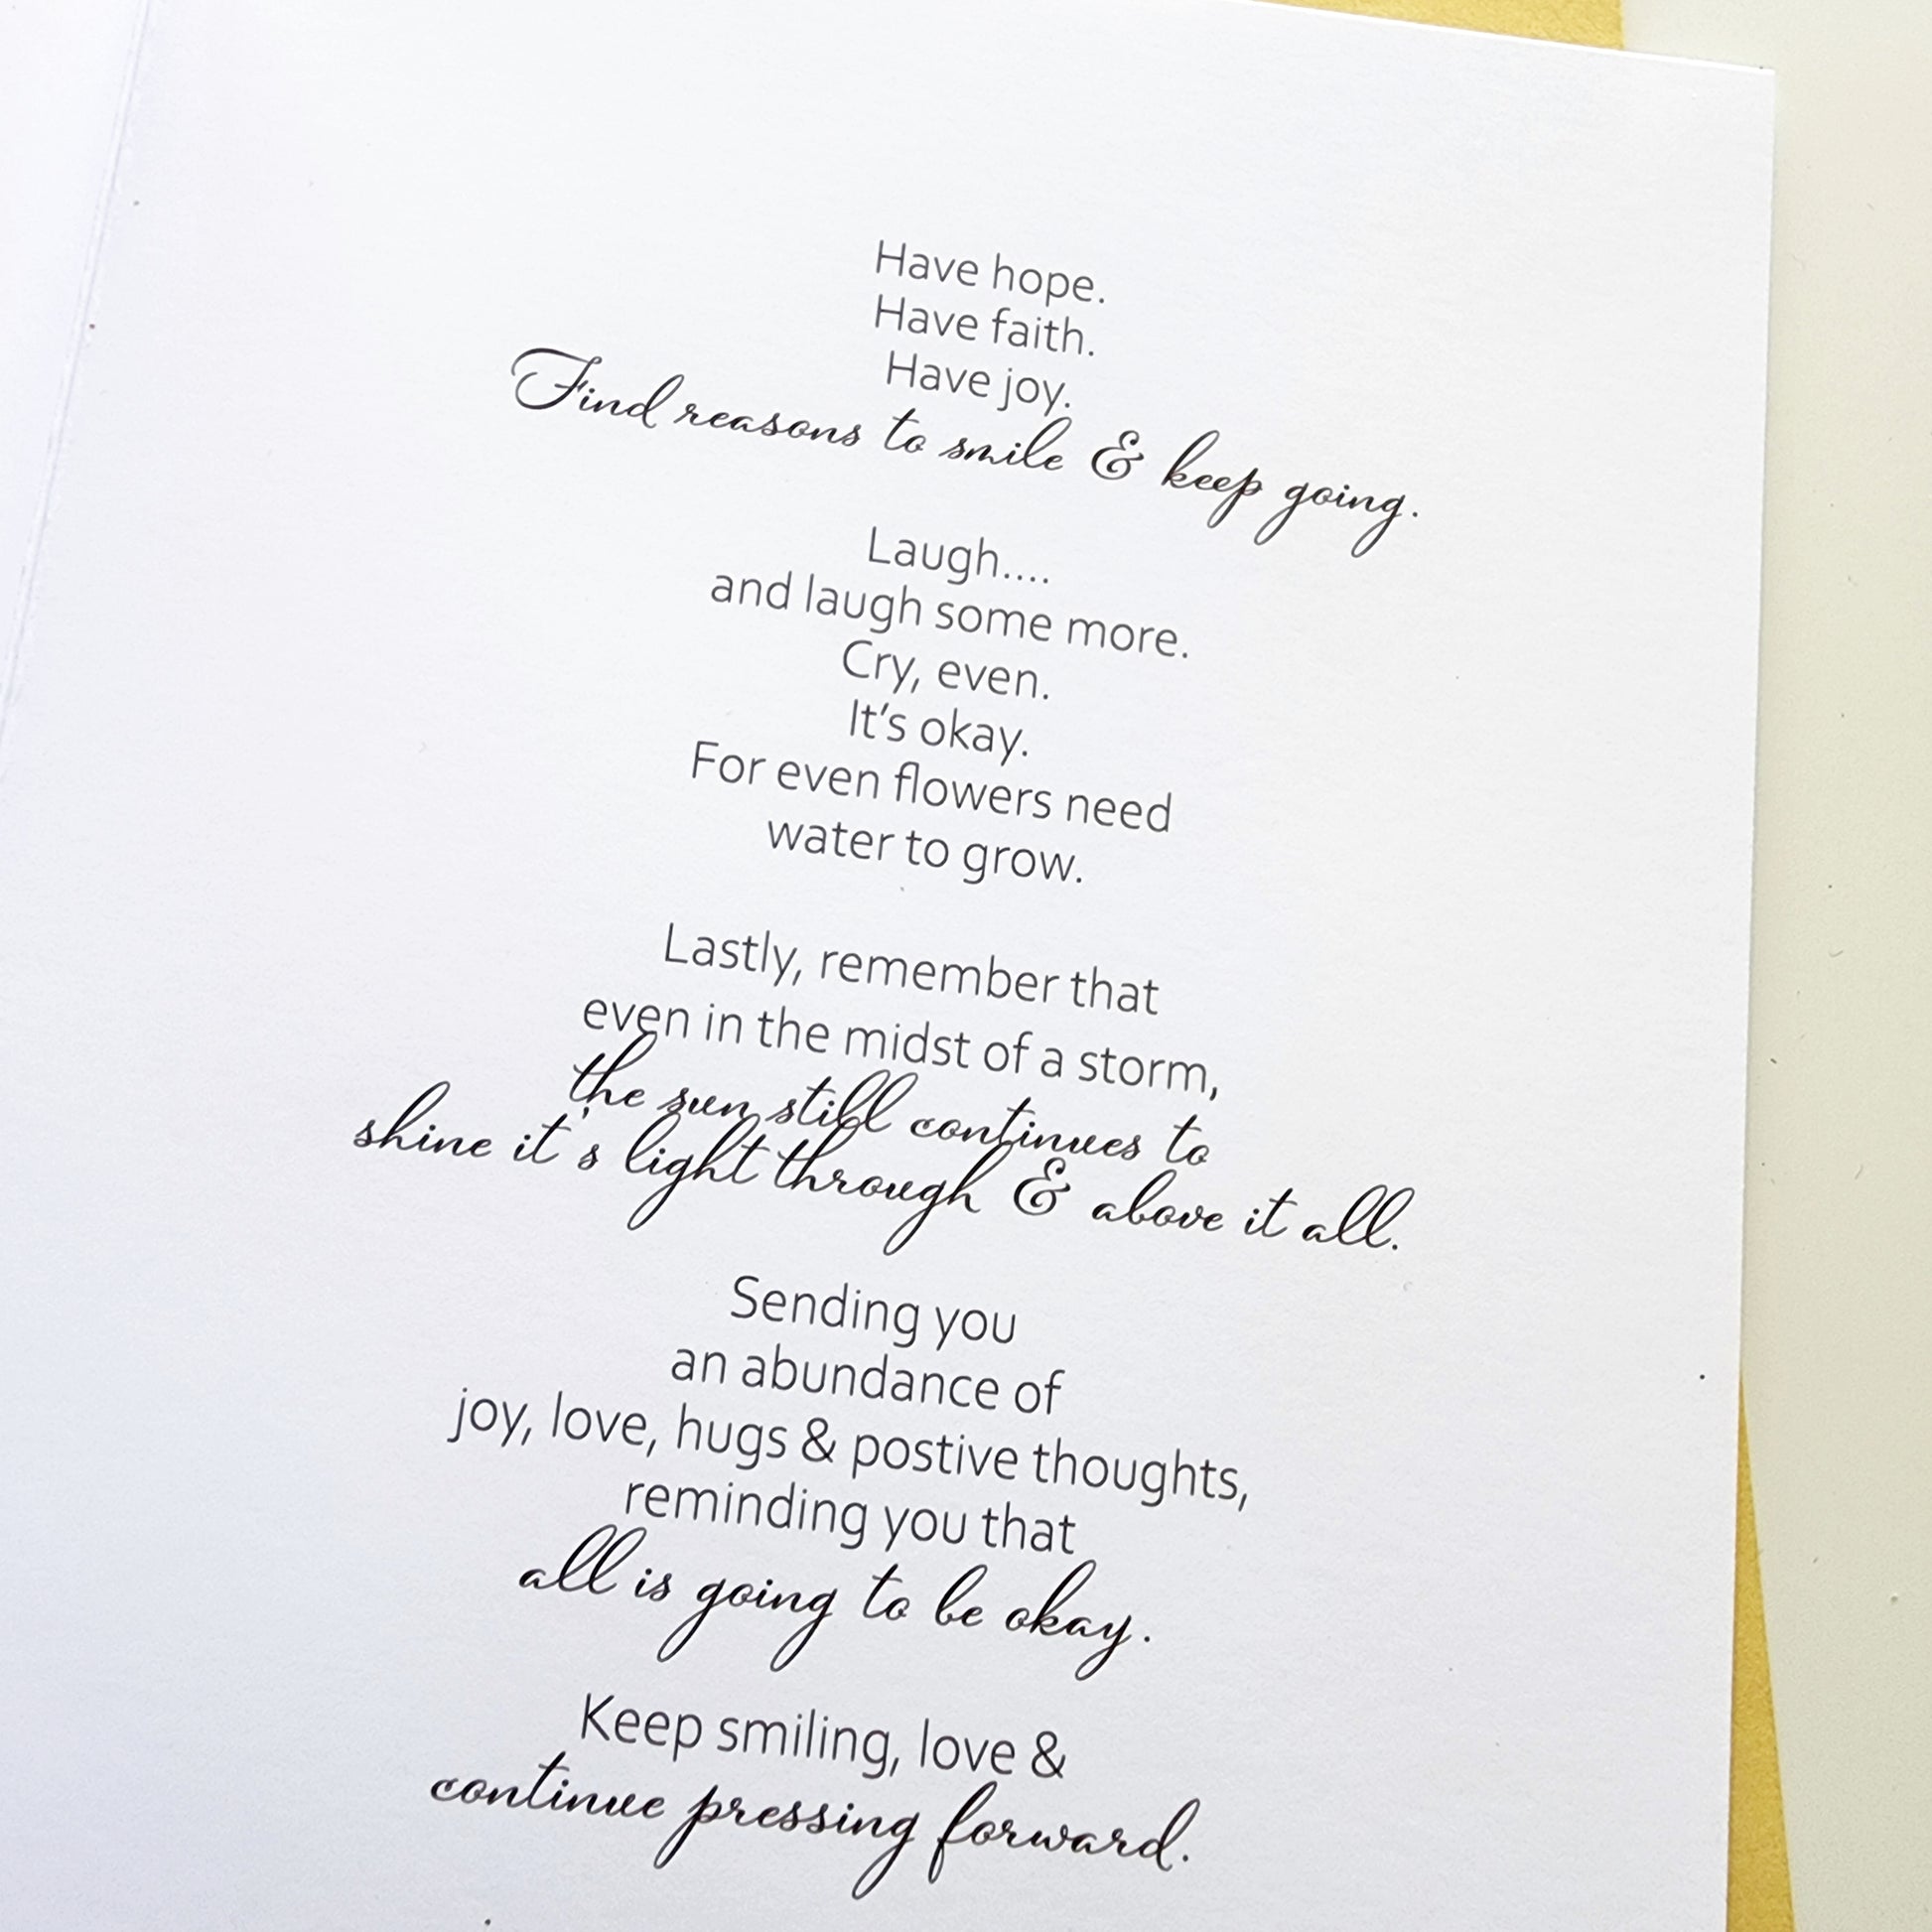 Have hope.
Have faith.
Have joy.
Find reasons to smile & keep going.
Laugh....
and laugh some more.
Cry, even.
It's okay.
For even flowers need
water to grow.
Lastly, remember that
even in the midst of a storm,
the sun still continues to
shine it's light through & above it all.
Sending you
an abundance of
joy, love, hugs & postive thoughts,
reminding you that
all is going to be okay.
Keep smiling, love &
continue pressing forward.